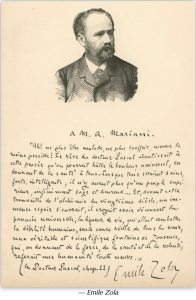 A M. A. Mariani.
"Ah! ne plus être malade, ne plus souffrir, mourir le
moins possible! Le rêve du docteur Pascal aboutissait à
cette pensée qu'on pourrait hâter le bonheur universel, en
donnant de la santé à tous. Lorsque tous seraient sains,
forts, intelligents, il n'y aurait plus qu'un peuple supé-
rieur, infiniment sage et heureux... Et, devant cette
trouvaille de l'alchimie du vingtième siècle, un
immense espoir s'ouvrait, il croyait avoir découvert la
panacée universelle, la liqueur de vie, qui allait combattre
la débilité humaine, seule cause réelle de tous les maux,
une véritable et scientifique fontaine de Jouvence,
qui, en donnant de la force, de la santé et de la volonté,
referait une humanité toute neuve."
Le Docteur Pascal, chap. II
Emile Zola
Emile Zola